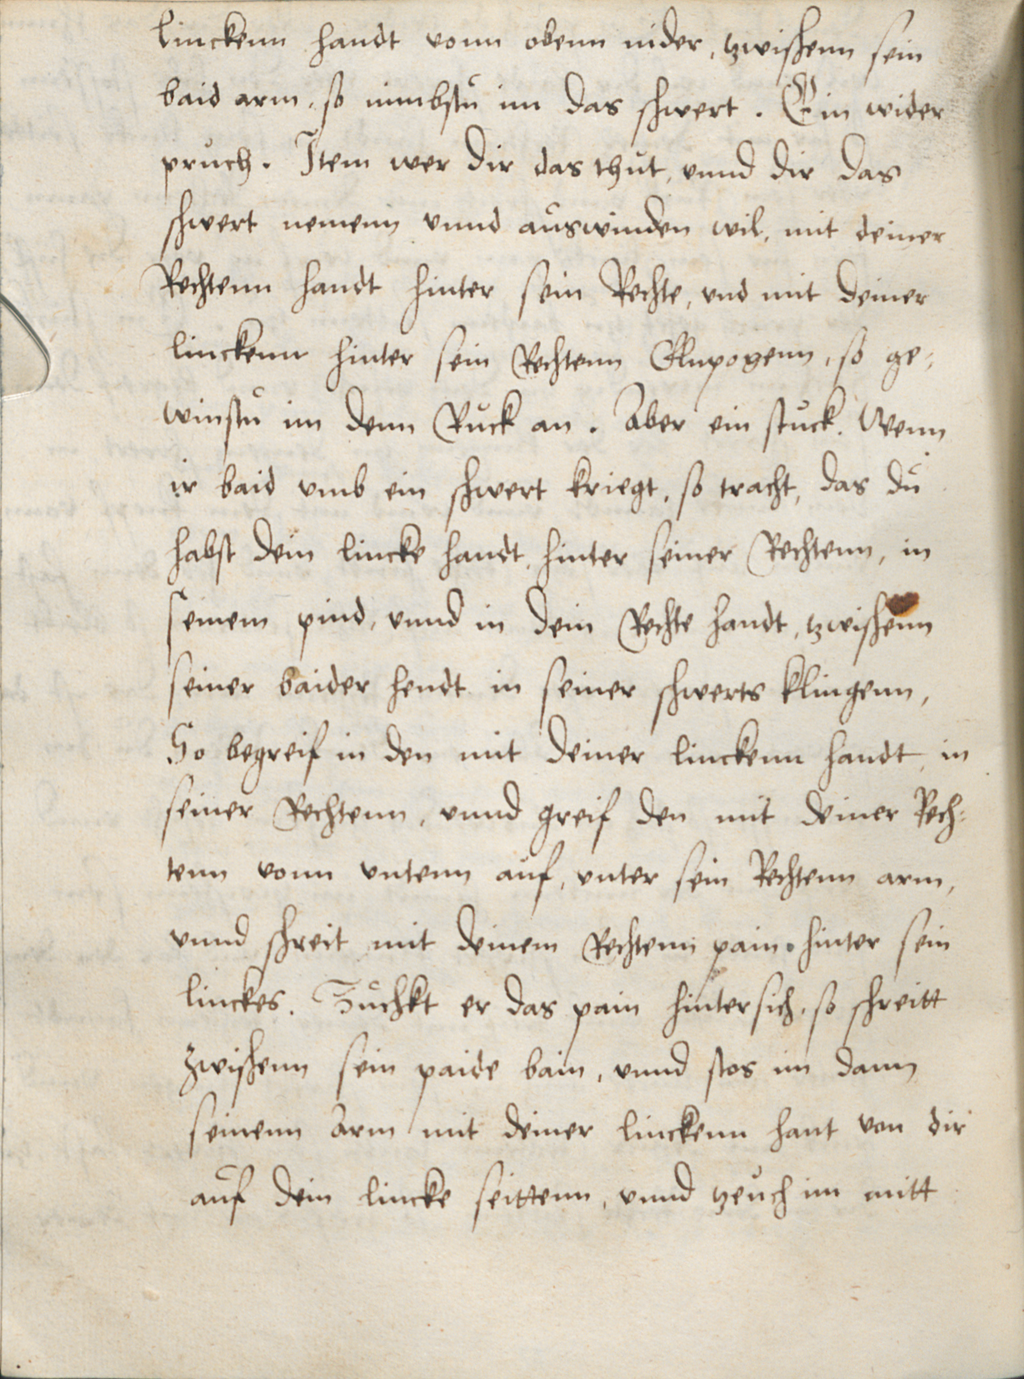 linckenn handt vonn obenn nider, tzwischenn sein
baid arm, so nimbstu im das schwert. Ein wider
pruch. Item wer dir das thut, vnnd dir das
schwert nemenn vnnd auswinden wil, mit deiner
Rechtenn handt hinter sein Rechte, vnd mit deiner
linckenn hinter sein Rechtenn Elnpogenn, so ge-
winstu im denn Ruck an. Aber ein stuck. Wenn
ir baid vmb ein schwert kriegt, so tracht, das du
habst dein lincke handt hinter seiner Rechtenn, in
seinem pind, vnnd in dein Rechte handt, tzwischenn
seiner baider hendt in seiner schwerts klingenn,
So begreif in den mit deiner linckenn handt, in
seiner Rechtenn, vnnd greif den mit deiner Rech-
tenn vonn vntenn auf, vnter sein Rechtenn arm,
vnnd schreit mit deinem Rechtenn pain hinter sein
linckes. Zuchkt er das pain hintersich, so schreitt
zwischenn sein paide bain, vnnd stos im dann
seinenn Arm mit deiner linckenn hant von dir
auf dein lincke seittenn, vnnd tzeuch im mitt